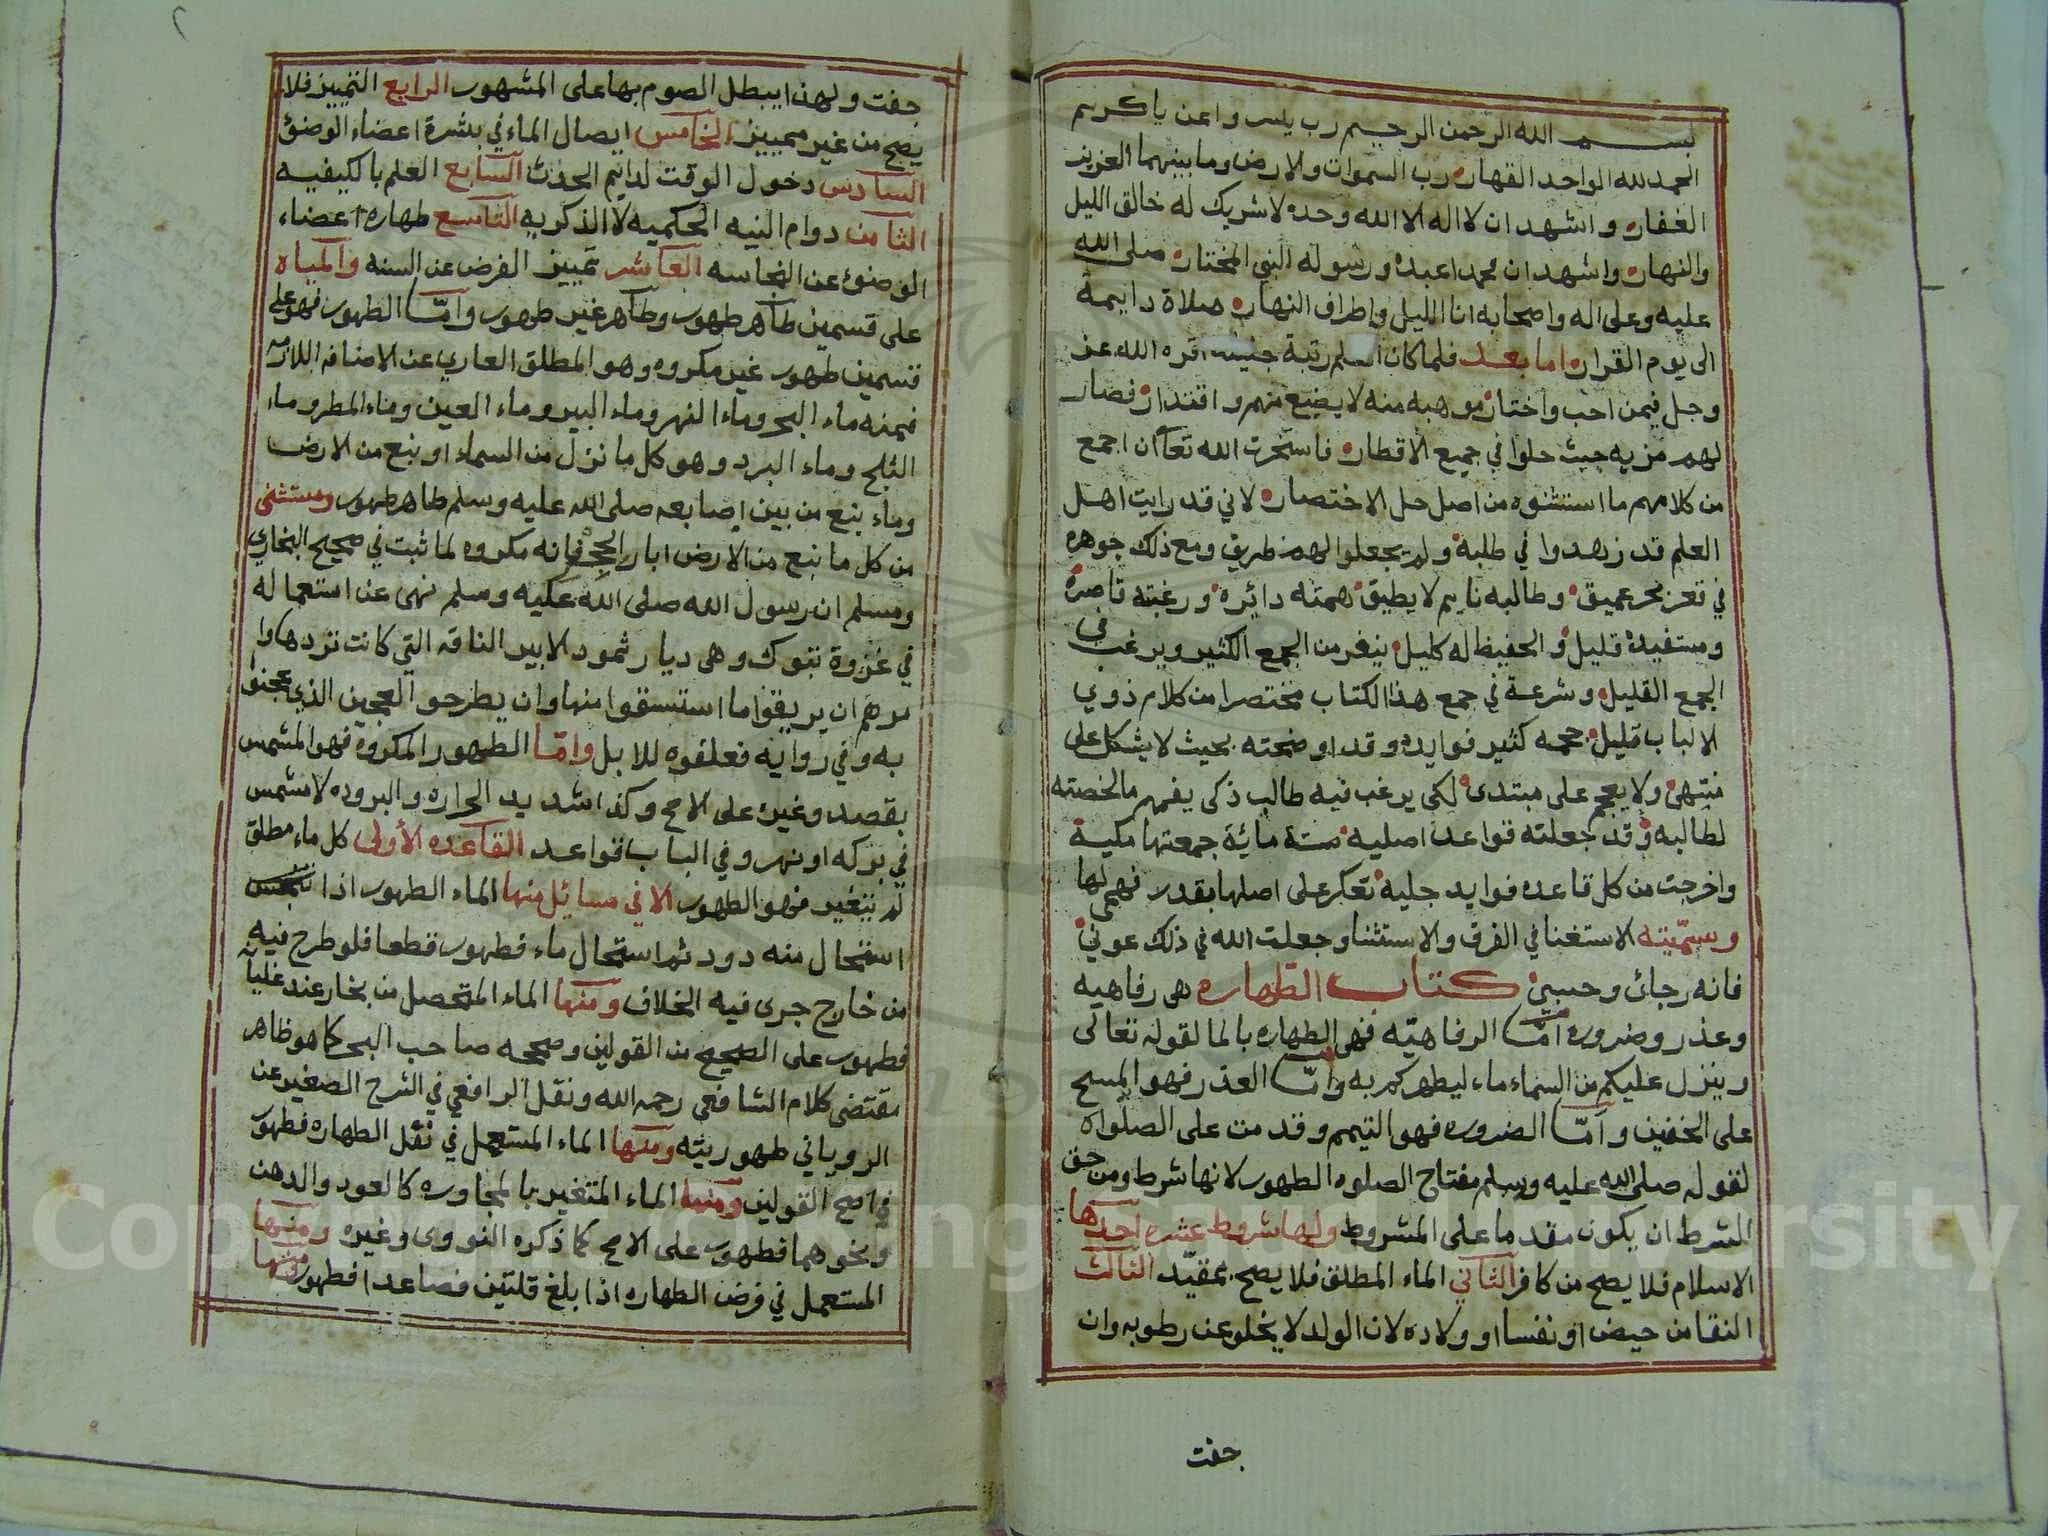 بسم الله الرحمن الرحيم رب يسر واعن يا كريم
الحمد لله الواحد القهار رب السموات والارض وما بينهما العزيز
الغفار واشهد ان لا اله الا الله وحده لا شريك له خالق الليل
والنهار واشهد ان محمدا عبده ورسوله النبي المختار صلى الله
عليه وعلى اله واصحابه انا الليل واطراف النهار صلاة دايمة
الى يوم القرار اما بعد فلما كان العلم رتبة اقره الله عز
وجل فيمن احب واختار موهبه منه لا يضيع منهم واقتدار فصار
لهم مزيه حيث حلوا في جميع الاقطار فاستخرت الله تعا ان اجمع
من كلامهم ما استثنوه من اصل حل الاختصار لاني قد رايت اهل
العلم قد زهدوا في طلبه ولم يجعلوا لهم طريق ومع ذلك جوهره
في قعر بحر عميق وطالبه نايم لا يطيق همته دائره ورغبته قاصره
ومستفيده قليل والحفيظ له كليل ينفر من الجمع الكثير ويرغب في
الجمع القليل وشرعة في جمع هذا الكتاب مختصرا من كلام ذوي
الالباب قليل حجمه كثير فوايده وقد اوضحته بحيث لا يشكل على
منتهى ولا يعجم على مبتدى لكي يرغب فيه طالب ذكى يفهم ما لخصته
لطالبه وقد جعلته قواعد اصليه ستة ماية جمعتها مكية
واخرجت من كل قاعده فوايد جلية تعكر على اصلها بقدر فهمي لها
وسميته الاستغنا في الفرق والاستثنا وجعلت الله في ذلك عوني
فانه رجائ وحسبي كتاب الطهاره هى رفاهيه
وعذر وضروره اما الرفاهيه فهى الطهاره بالما لقوله تعالى
وينزل عليكم من السماء ماء ليطهركم به واما العذر فهو المسح
على الخفين واما الضروره فهو التيمم وقدمت على الصلواه
لقوله صلى الله عليه وسلم مفتاح الصلوه الطهور لانها شرط ومن حق
الشرط ان يكون مقدما على المشروط ولها شروط عشره احدها
الاسلام فلا يصح من كافر الثاني الماء المطلق فلا يصح بمقيد الثالث
النقا من حيض او نفسا او ولاده لان الولد لا يخلو عن رطوبه وان
جفت
جفت ولهذا يبطل الصوم بها على المشهور الرابع التمييز فلا
يصح من غير مميز الخامس ايصال الماء في بشرة اعضاء الوضئ
السادس دخول الوقت لدايم الحدث السابع العلم بالكيفيه
الثامن دوام النيه الحكميه لا الذكريه التاسع طهارة اعضاء
الوضوئ عن النجاسه العاشر تمييز الفرض عن السنه والمياه
على قسمين طاهر طهور وطاهر غير طهور واما الطهور فهو على
قسمين طهور غير مكروه وهو المطلق العاري عن الاضافه اللازمه
فمنه ماء البحر وماء النهر وماء البير وماء العين وماء المطر وماء
الثلج وماء البرد وهو كل ما نزل من السماء او نبع من الارض
وماء نبع من بين اصابعه صلى الله عليه وسلم طاهر طهور ومستثنى
من كل ما نبع من الارض ابار الحجر فانه مكروه لما ثبت في صحيح البخاري
ومسلم ان رسول الله صلى الله عليه وسلم نهى عن استعماله
في غزوة تبوك وهى ديار ثمود الا بير الناقه التي كانت تردها وا
مرهم ان يريقوا ما استسقوا منها وان يطرحوا العجين الذي عجنوا
به وفي روايه فعلفوه للابل واما الطهور المكروه فهو المشمس
بقصد وغيره على الاصح وكذا شديد الحراره والبروده لا مشمس
في بركه او نهر وفي الباب قواعد القاعده الأولى كل ماء مطلق
لم يتغير فهو الطهور الا في مسائل منها الماء الطهور اذا
استحال منه دود ثم استحال ماء فطهور قطعا فلو طرح فيه
من خارج جرى فيه الخلاف ومنها الماء المتحصل من بخار عند غليانه
فطهور على الصحيح من القولين وصححه صاحب البحر كما هو ظاهر
مقتضى كلام الشافعى رحمه الله ونقل الرافعي في الشرح الصغير عن
الروياني طهوريته ومنها الماء المستعمل في نفل الطهاره فطهور
في اصح القولين ومنها الماء المتغير بالمجاوره كالعود والدهن
ونحوهما فطهور على الاصح كما ذكره النووى وغيره ومنها
المستعمل في فرض الطهاره اذا بلغ قلتين فصاعدا فطهور ومنها